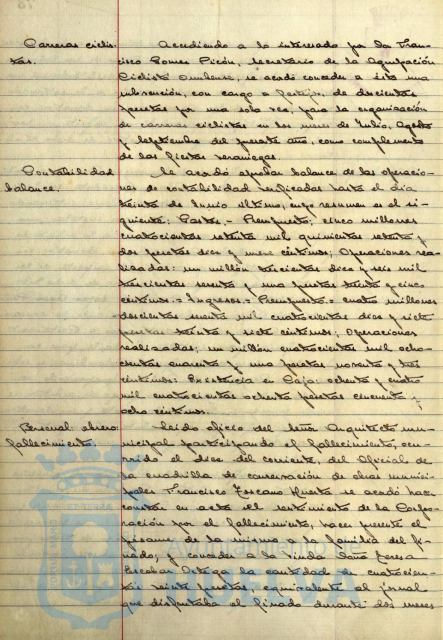 Carreras ciclis-
tas.
Accediendo a lo interesado por Don Fran-
cisco Gomez Picón, secretario de la Agrupación
Ciclista Onubense, se acodó conceder a ésta una
subvención, con cargo a festejos, de doscientas
pesetas por una sola vez, para la organización
de carreras ciclistas en los meses de Julio, Agosto
y Septiembre del presente año, como complemento
de las fiestas veraniegas.
Contabilidad
balance.
Se acordó aprobar balance de las operacio-
nes de contabilidad verificadas hasta el dia
treinta de Junio último, cuyo resumen es el si-
guiente: Gastos.- Presupuesto: cinco millones
cuatrocientas setenta mil quinientas setenta y
dos pesetas diez y nueve céntimos; Operaciones rea-
lizadas: un millón trescientas diez y seis mil
trescientas sesenta y una pesetas treinta y cinco
céntimos.= Ingresos.= Presupuesto.= cuatro millones
doscientas setenta mil cuatrocientas diez y siete
pesetas treinta y siete céntimos; Operaciones
realizadas; un millón cuatrocientas mil ocho-
cientas cuarenta y una pesetas noventa y tres
céntimos: Existencia en Caja: ochenta y cuatro
mil cuatrocientas ochenta pesetas cincuenta y
ocho céntimos.
Personal: obrero:
fallecimiento.
Leido oficio del Señor Arquitecto mu-
nicipal participando el fallecimiento, ocu-
rrido el doce del corriente, del Oficial de
la cuadrilla de conservación de obras munici-
pales Francisco Toscano Huerta se acodó hacer
constar en acta el sentimiento de la Corpo-
ración por el fallecimiento, hacer presente el
pésame de la misma a la familia del fi-
nado; y conceder a la viuda Doña Teresa
Escobar Ortega la cantidad de cuatrocien-
tas veinte pesetas, equivalente al jornal
que disfrutaba el finado durante dos meses